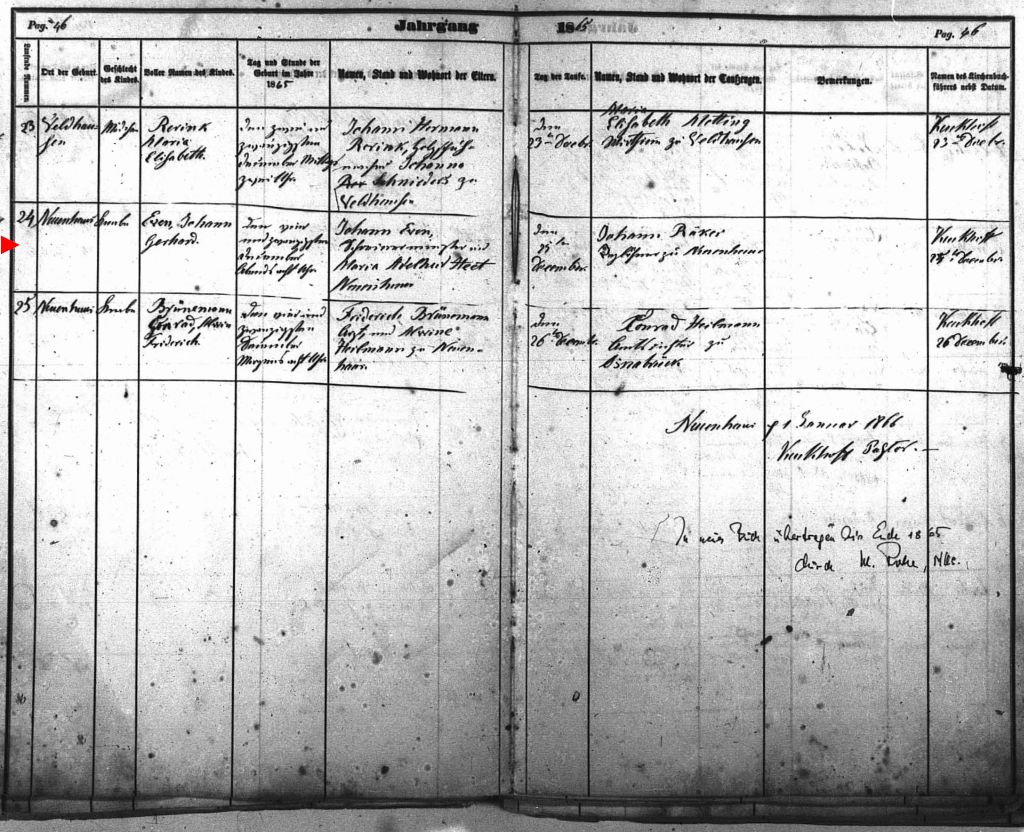 Pag. 46
Jahrgang
1865
Pag. 46
Laufende Nummern.
Ort der Geburt.
Geschlecht des Kindes.
Voller Namen des Kindes.
Tag und Stunde der
Geburt im Jahre
1865
Namen, Stand und Wohnort der Eltern.
Tag der Taufe.
Namen, Stand und Wohnort der Taufzeugen.
Bemerkungen.
Namen des Kirchenbuch-
führers nebst Datum.
23
Veldhau-
sen
Mädchen
Rerink
Maria
Elisabeth.
den zwei und
zwanzigsten
December Mittags
zwei Uhr
Johann Hermann
Rerink,
Johanna
Schnieders zu
Veldhausen
den
23ten Decbr.
Maria
Elisabeth
zu Veldhausen
23ten Decbr.
24
Neuenhaus
Knabe
Even, Johann
Gerhard.
den vier
und zwanzigsten
December
Abends acht Uhr
Johann Even,
und
Maria Adelheid
Neuenhaus
den
25ten
December.
Johann
zu Neuenhaus
25ten December
25
Neuenhaus
Knabe
Brünemann
Conrad, Maria
Friderich
den vier und
zwanzigsten
December
Morgens acht Uhr
Friderich Brünemann
Arzt und Marine
Heilmann zu Neuen-
haus.
den
26ten Decembr.
Konrad Heilmann
Amtsrichter zu
Osnabrück
26 December.
Neuenhaus d 1 Januar 1866
Pastor.
In neues Buch übertragen bis Ende 1865
durch M.